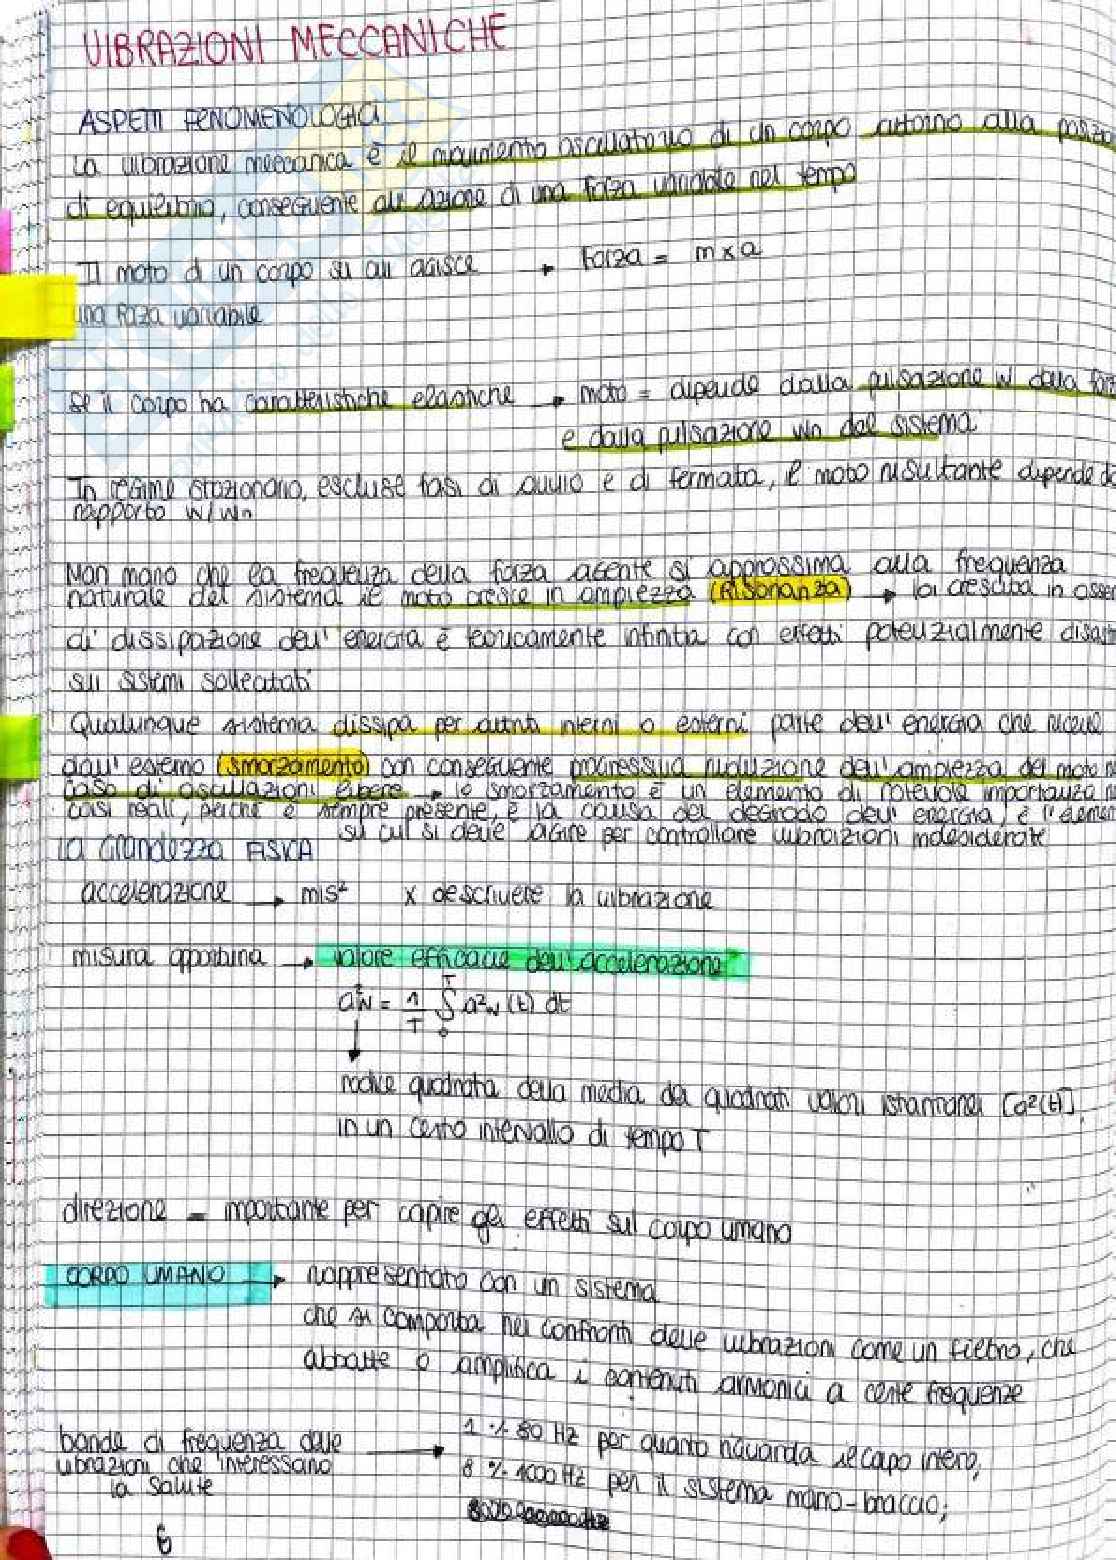 VIBRAZIONI MECCANICHE
ASPETTI FENOMENOLOGICI
La vibrazione meccanica è il movimento oscillatorio di un corpo attorno alla
di equilibrio, conseguente all'azione di una forza variabile nel tempo
Il moto di un corpo su cui agisce → forza = m x a
una forza variabile
se il corpo ha caratteristiche elastiche → moto = dipende dalla pulsazione w della
e dalla pulsazione wn del sistema
In regime stazionario, escluse fasi di avvio e di fermata, il moto risultante dipende
rapporto w/wn
Man mano che la frequenza della forza agente si approssima alla frequenza
naturale del sistema il moto cresce in ampiezza (Risonanza) → la crescita in
di dissipazione dell'energia è teoricamente infinita con effetti potenzialmente
sui sistemi sollecitati
Qualunque sistema dissipa per attriti interni o esterni parte dell'energia che riceve
dall'esterno (smorzamento) con conseguente progressiva riduzione dell'ampiezza del moto
caso di oscillazioni libere → lo smorzamento è un elemento di notevole importanza
casi reali, perchè è sempre presente, è la causa del degrado dell'energia, è
su cui si deve agire per controllare vibrazioni indesiderate
La Grandezza FISICA
accelerazione → m/s² x descrivere la vibrazione
misura opportuna → valore efficace dell'accelerazione
a²w = 1/T ∫₀ᵀ a²w (t) dt
radice quadrata della media dei quadrati valori istantanei [a²(t)]
in un certo intervallo di tempo T
direzione = importante per capire gli effetti sul corpo umano
CORPO UMANO → rappresentato con un sistema
che si comporta nei confronti delle vibrazioni come un filtro, che
abbatte o amplifica i contenuti armonici a certe frequenze
bande di frequenza delle → 1 ÷ 80 Hz per quanto riguarda il capo intero,
vibrazioni che interessano
la salute
8 ÷ 1000 Hz per il sistema mano-braccio;
6